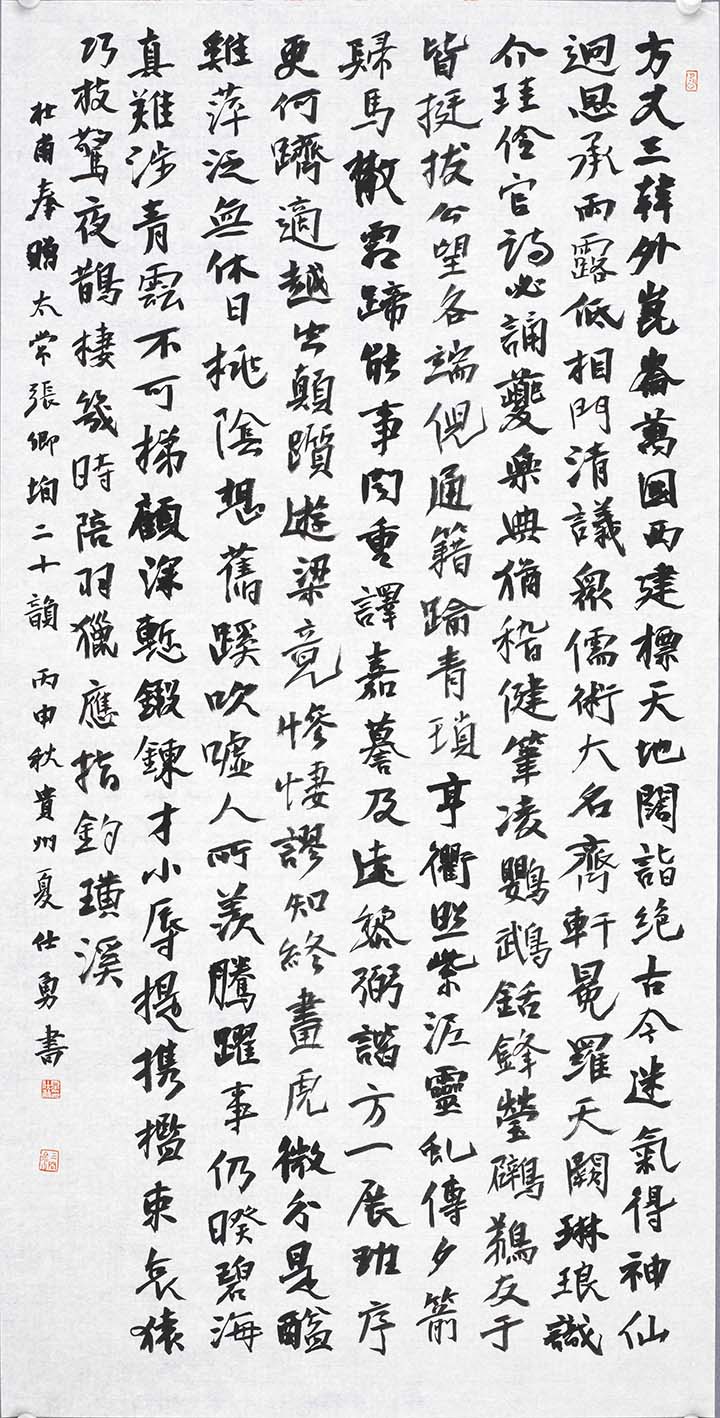 方丈三韓外崑崙萬國西建標天地闊詣絕古今迷氣得神仙
迥恩承雨露低相門清議眾儒術大名齊軒冕羅天闕琳琅識
介珪伶官詩必誦夔樂典猶稽健筆凌鸚鵡銛鋒瑩鸊鵜友于
皆挺拔公望各端倪通籍踰青瑣亨衢照紫泥靈虬傳夕箭
歸馬散霜蹄能事聞重譯嘉謩及遠黎弼諧方一展班序
更何躋適越空顛躓遊梁竟慘悽謬知終畫虎微分是醯
雞萍泛無休日桃陰想舊蹊吹噓人所羨騰躍事仍暌碧海
真難涉青雲不可梯顧深慙鍛鍊才小辱提携檻束哀猿
巧枝驚夜鵲棲幾時陪羽獵應指釣璜溪
杜甫奉贈太常張卿垍二十韻 丙申秋貴州夏仕勇書